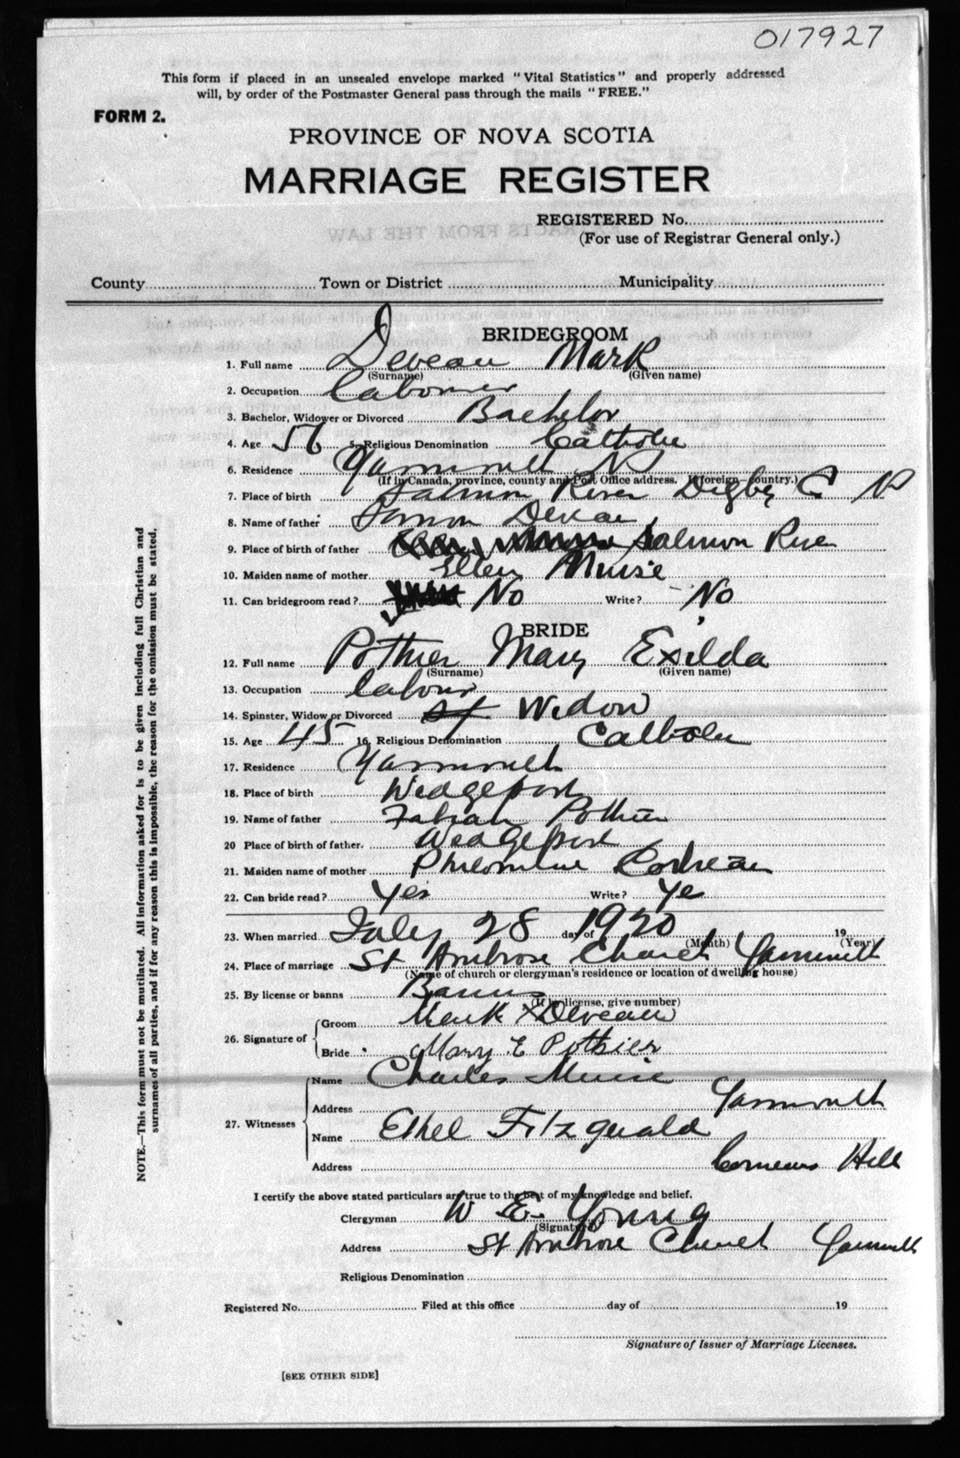 017927
This form if placed in an unsealed envelope marked "Vital Statistics" and properly addressed
will, by order of the Postmaster General pass through the mails "FREE."
FORM 2.
PROVINCE OF NOVA SCOTIA
MARRIAGE REGISTER
REGISTERED No.
(For use of Registrar General only.)
County Town or District Municipality
BRIDEGROOM
1. Full name Deveau Mark
(Surname) (Given name)
2. Occupation Labourer
3. Bachelor, Widower or Divorced Bachelor
4. Age 56 5. Religious Denomination Catholic
6. Residence Yarmouth NS
(If in Canada, province, county and Post Office address. If foreign—country.)
7. Place of birth Salmon River Digby Co NS
8. Name of father Deveau
9. Place of birth of father Salmon River
10. Maiden name of mother Ellen Muise
11. Can bridegroom read? No Write? No
BRIDE
12. Full name Pothier Mary Exilda
(Surname) (Given name)
13. Occupation labour
14. Spinster, Widow or Divorced Widow
15. Age 45 16. Religious Denomination Catholic
17. Residence Yarmouth
18. Place of birth Wedgeport
19. Name of father Fabian Pothier
20 Place of birth of father. Wedgeport
21. Maiden name of mother
22. Can bride read? Yes Write? Ye
23. When married July 28 day of 1920 19
(Month) (Year)
24. Place of marriage St Ambrose Church Yarmouth
(Name of church or clergyman's residence or location of dwelling house)
25. By license or banns Banns
(If by license, give number)
26. Signature of Groom Mark X Deveau
Bride Mary E Pothier
27. Witnesses Name Charles Muise
Address Yarmouth
Name Ethel Fitzgerald
Address Comeaus Hill
I certify the above stated particulars are true to the best of my knowledge and belief.
Clergyman W E. Young
(Signature)
Address St Ambrose Church Yarmouth
Religious Denomination
Registered No. Filed at this office day of 19
Signature of Issuer of Marriage Licenses.
[SEE OTHER SIDE]
NOTE.—This form must not be mutilated. All information asked for is to be given including full Christian and
surnames of all parties, and if for any reason this is impossible, the reason for the omission must be stated.